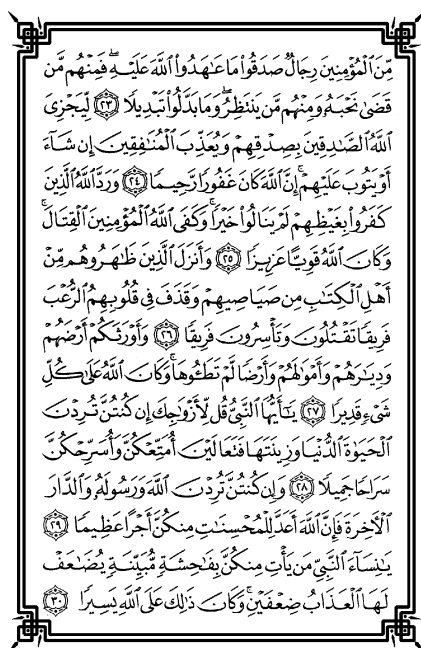 مِّنَ ٱلۡمُؤۡمِنِينَ رِجَالٞ صَدَقُواْ مَا عَٰهَدُواْ ٱللَّهَ عَلَيۡهِۖ فَمِنۡهُم مَّن
قَضَىٰ نَحۡبَهُۥ وَمِنۡهُم مَّن يَنتَظِرُۖ وَمَا بَدَّلُواْ تَبۡدِيلٗا ٢٣ لِّيَجۡزِيَ
ٱللَّهُ ٱلصَّٰدِقِينَ بِصِدۡقِهِمۡ وَيُعَذِّبَ ٱلۡمُنَٰفِقِينَ إِن شَآءَ
أَوۡ يَتُوبَ عَلَيۡهِمۡۚ إِنَّ ٱللَّهَ كَانَ غَفُورٗا رَّحِيمٗا ٢٤ وَرَدَّ ٱللَّهُ ٱلَّذِينَ
كَفَرُواْ بِغَيۡظِهِمۡ لَمۡ يَنَالُواْ خَيۡرٗاۚ وَكَفَى ٱللَّهُ ٱلۡمُؤۡمِنِينَ ٱلۡقِتَالَۚ
وَكَانَ ٱللَّهُ قَوِيًّا عَزِيزٗا ٢٥ وَأَنزَلَ ٱلَّذِينَ ظَٰهَرُوهُم مِّنۡ
أَهۡلِ ٱلۡكِتَٰبِ مِن صَيَاصِيهِمۡ وَقَذَفَ فِي قُلُوبِهِمُ ٱلرُّعۡبَ
فَرِيقٗا تَقۡتُلُونَ وَتَأۡسِرُونَ فَرِيقٗا ٢٦ وَأَوۡرَثَكُمۡ أَرۡضَهُمۡ
وَدِيَٰرَهُمۡ وَأَمۡوَٰلَهُمۡ وَأَرۡضٗا لَّمۡ تَطَـُٔوهَاۚ وَكَانَ ٱللَّهُ عَلَىٰ كُلِّ
شَيۡءٖ قَدِيرٗا ٢٧ يَٰٓأَيُّهَا ٱلنَّبِيُّ قُل لِّأَزۡوَٰجِكَ إِن كُنتُنَّ تُرِدۡنَ
ٱلۡحَيَوٰةَ ٱلدُّنۡيَا وَزِينَتَهَا فَتَعَالَيۡنَ أُمَتِّعۡكُنَّ وَأُسَرِّحۡكُنَّ
سَرَاحٗا جَمِيلٗا ٢٨ وَإِن كُنتُنَّ تُرِدۡنَ ٱللَّهَ وَرَسُولَهُۥ وَٱلدَّارَ
ٱلۡأٓخِرَةَ فَإِنَّ ٱللَّهَ أَعَدَّ لِلۡمُحۡسِنَٰتِ مِنكُنَّ أَجۡرًا عَظِيمٗا ٢٩
يَٰنِسَآءَ ٱلنَّبِيِّ مَن يَأۡتِ مِنكُنَّ بِفَٰحِشَةٖ مُّبَيِّنَةٖ يُضَٰعَفۡ
لَهَا ٱلۡعَذَابُ ضِعۡفَيۡنِۚ وَكَانَ ذَٰلِكَ عَلَى ٱللَّهِ يَسِيرٗا ٣٠